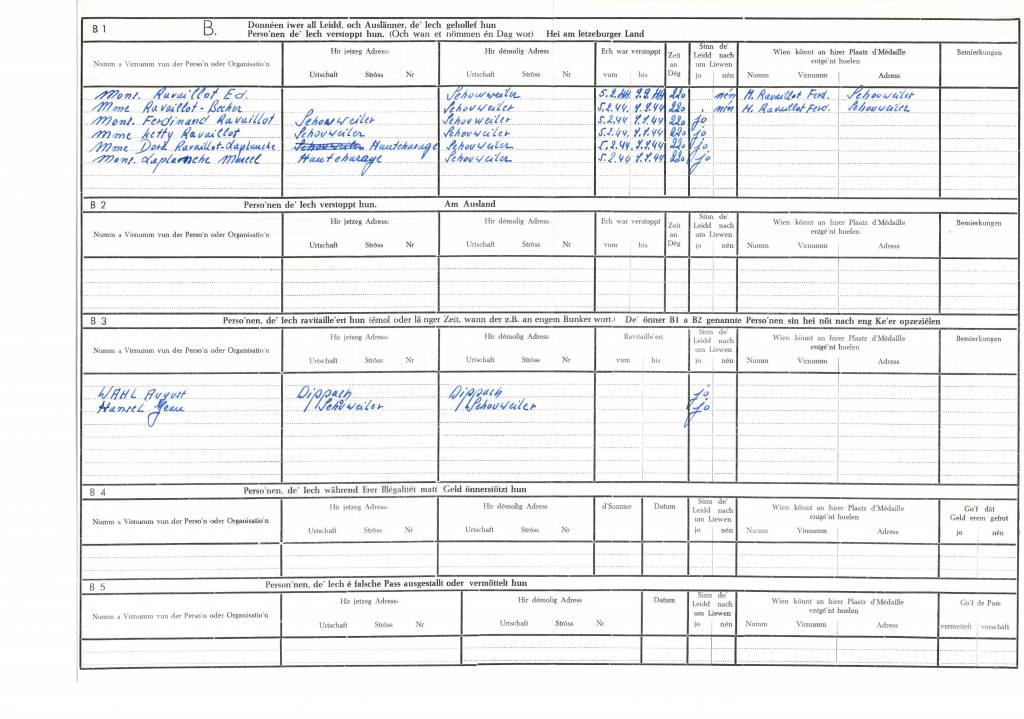 B 1 B. Donnéen iwer all Leidd, och Auslänner, de' Iech gehollef hun
Perso'nen de' Iech verstoppt hun. (Och wan et nömmen én Dag wor) Hei am letzeburger Land
Numm a Virnumm vun der Perso'n oder Organisatio'n Hir jetzeg Adress: Hir démolig Adress: Ech war verstoppt Zeit an Dég Sinn de' Leidd nach um Liewen Wien könnt an hirer Plaatz d'Médaille entgé'nt huelen Bemierkungen
Urtschaft Ströss Nr Urtschaft Ströss Nr vum bis jo nén Numm Virnumm Adress
Mons. Ravaillot Ed. Schouweiler 5.2.44 9.9.44 220 nén M. Ravaillot Ferd. Schouweiler
Mme Ravaillot-Becher Schouweiler 5.2.44. 9.9.44 220 nén M. Ravaillot Ferd. Schouweiler
Mons. Ferdinand Ravaillot Schouweiler Schouweiler 5.2.44 9.9.44 220 jo
Mme Ketty Ravaillot Schouweiler Schouweiler 5.2.44. 9.9.44 220 jo
Mme Dora Ravaillot-Laplanche Schouweiler Hautcharage Schouweiler 5.2.44. 9.9.44 220 jo
Mons. Laplanche Marcel Hautcharage Schouweiler 5.2.44 9.9.44 220 jo
B 2 Perso'nen de' Iech verstoppt hun. Am Ausland
Numm a Virnumm vun der Perso'n oder Organisatio'n Hir jetzeg Adress: Hir démolig Adress: Ech war verstoppt Zeit an Dég Sinn de' Leidd nach um Liewen Wien könnt an hirer Plaatz d'Médaille entgé'nt huelen Bemierkungen
Urtschaft Ströss Nr Urtschaft Ströss Nr vum bis jo nén Numm Virnumm Adress
B 3 Perso'nen, de' Iech ravitaille'ert hun (émol oder länger Zeit, wann der z.B. an engem Bunker wort.) De' önner B1 a B2 genannte Perso'nen sin hei nöt nach eng Ke'er opzeziélen
Numm a Virnumm vun der Perso'n oder Organisatio'n Hir jetzeg Adress: Hir démolig Adress: Ravitaille'ert Sinn de' Leidd nach um Liewen Wien könnt an hirer Plaatz d'Médaille entgé'nt huelen Bemierkungen
Urtschaft Ströss Nr Urtschaft Ströss Nr vum bis jo nén Numm Virnumm Adress
WAHL August Dippach Dippach jo
Hansel Jean / Schouweiler / Schouweiler jo
B 4 Perso'nen, de' Iech während Erer Illégalitét matt Geld önnerstözt hun
Numm a Virnumm vun der Perso'n oder Organisatio'n Hir jetzeg Adress: Hir démolig Adress: d'Somme Datum Sinn de' Leidd nach um Liewen Wien könnt an hirer Plaatz d'Médaille entgé'nt huelen Go'f dät Geld erem gefrot
Urtschaft Ströss Nr Urtschaft Ströss Nr jo nén Numm Virnumm Adress jo nén
B 5 Person'nen, de' Iech é falsche Pass ausgestallt oder vermöttelt hun
Numm a Virnumm vun der Perso'n oder Organisatio'n Hir jetzeg Adress: Hir démolig Adress Datum Sinn de' Leidd nach um Liewen Wien könnt an hirer Plaatz d'Médaille entgé'nt huelen Go'f de Pass
Urtschaft Ströss Nr Urtschaft Ströss Nr jo nén Numm Virnumm Adress vermettelt verschäft